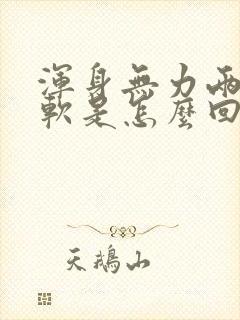 渾身無力兩
軟是怎麼回
天鵝山